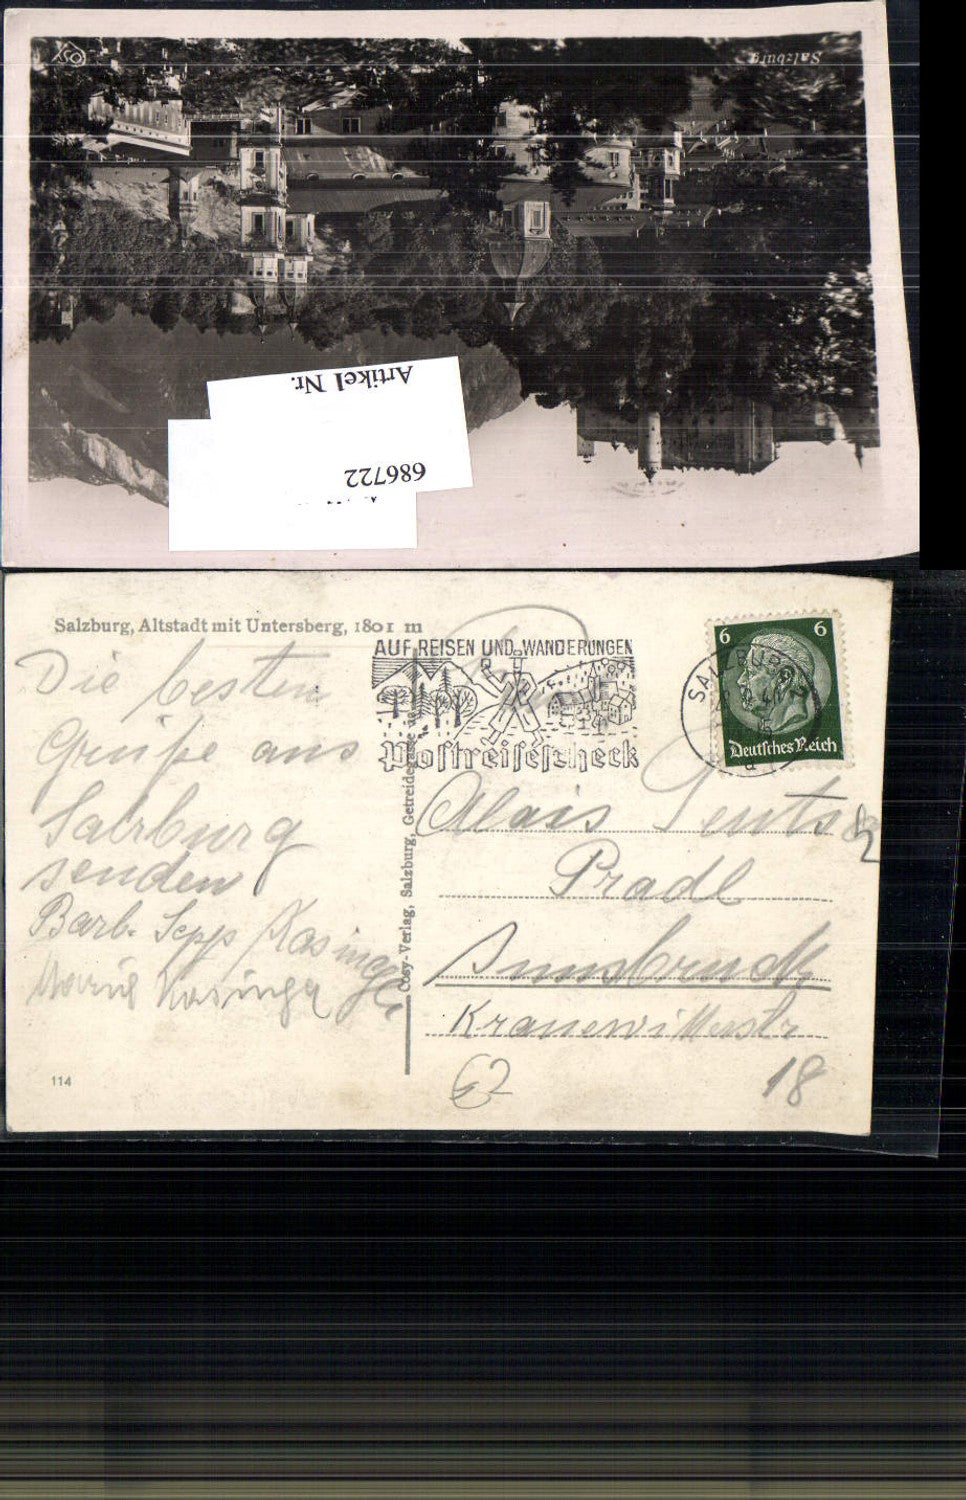 Salzburg
Artikel Nr.
686722
Salzburg, Altstadt mit Untersberg, 1801 m
AUF REISEN UND WANDERUNGEN
Postreisescheck
SALZBURG 2
6 6
Deutsches Reich
Die besten
Grüße aus
Salzburg
senden
Barb. Sepp Kasinger
Maria Kasinger
Cosy-Verlag, Salzburg, Getreidegasse
Alois
Pradl
Innsbruck
Kranewitterstr
18
62
114